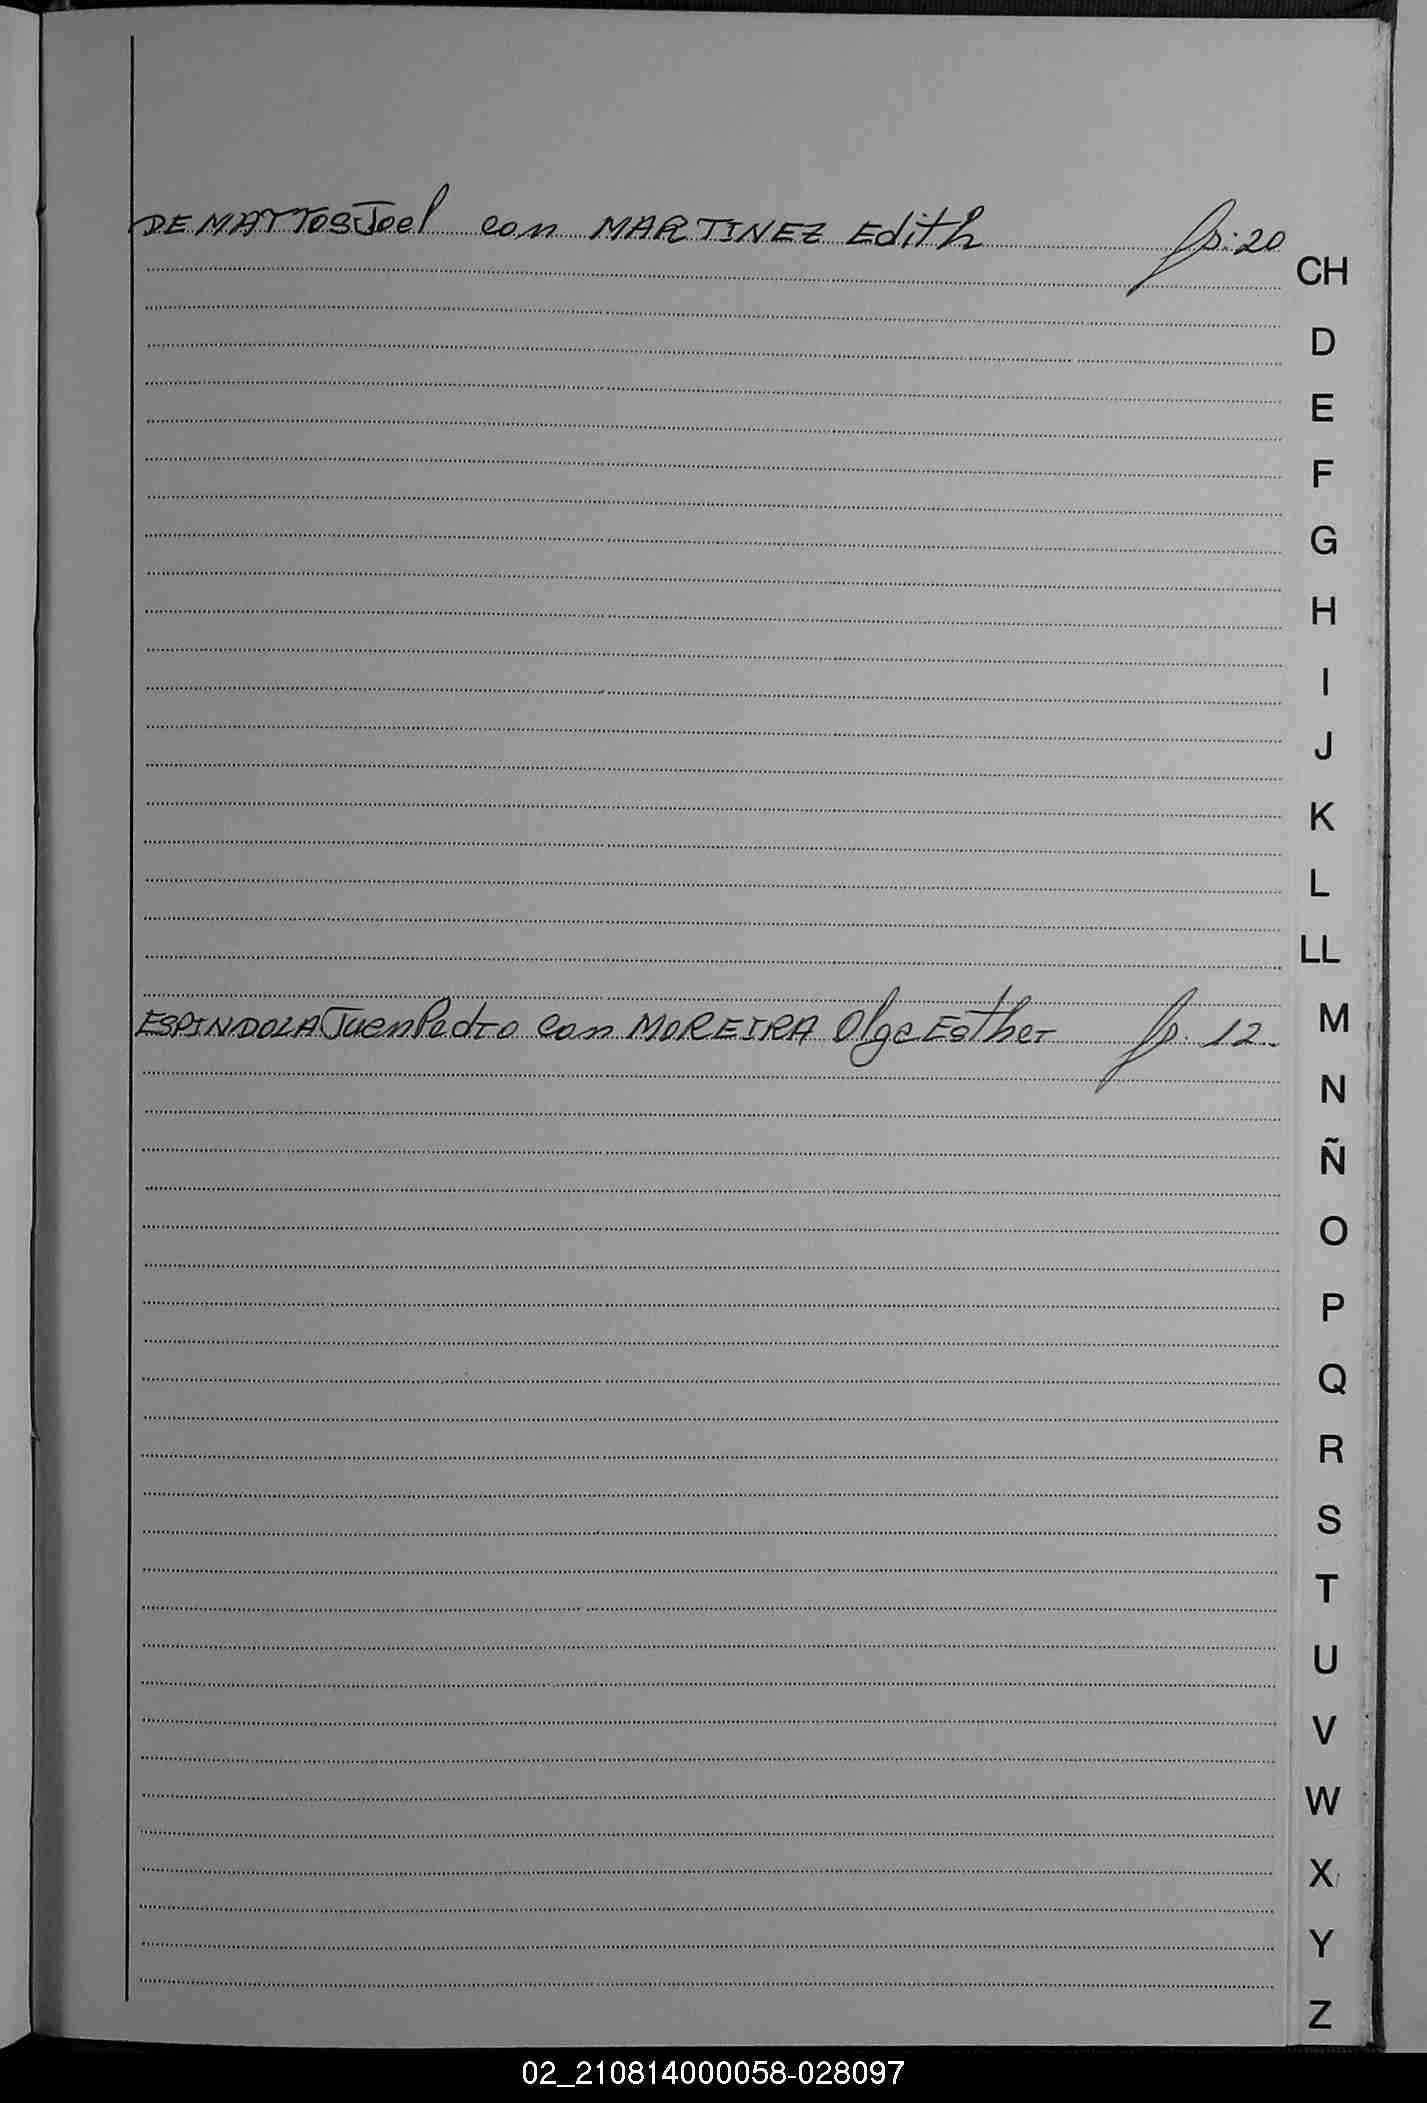 DE MATTOS Joel con MARTINEZ Edith fs: 20
CH
D
E
F
G
H
I
J
K
L
LL
ESPINDOLA Juan Pedro con MOREIRA Olga Esther fs. 12.
M
N
Ñ
O
P
Q
R
S
T
U
V
W
X
Y
Z
02_210814000058-028097